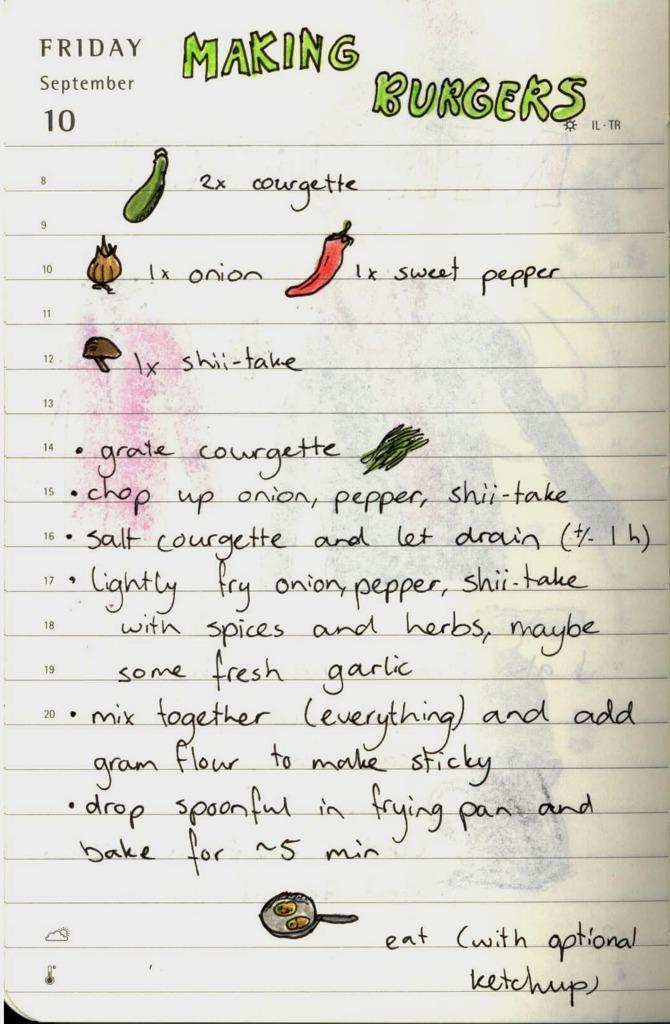 FRIDAY
September
10
MAKING
BURGERS
IL - TR
8
2x courgette
9
10
1x onion
1x sweet pepper
11
12
1x shii-take
13
14 • grate courgette
15 • chop up onion, pepper, shii-take
16 • salt courgette and let drain (+/- 1 h)
17 • lightly fry onion, pepper, shii-take
18 with spices and herbs, maybe
19 some fresh garlic
20 • mix together (everything) and add
gram flour to make sticky
• drop spoonful in frying pan and
bake for ~5 min
eat (with optional
ketchup)